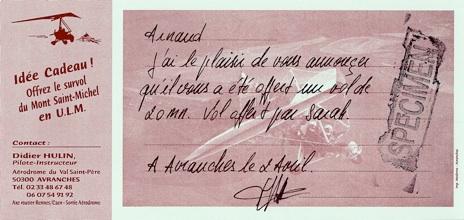 Idée Cadeau !
Offrez le survol
du Mont Saint-Michel
en U.L.M.
Contact :
Didier HULIN,
Pilote-Instructeur
Aérodrome du Val Saint-Père
50300 AVRANCHES
Tél. 02 33 48 67 48
06 07 54 91 92
Axe routier Rennes/Caen - Sortie Aérodrome
Arnaud
J'ai le plaisir de vous annoncer
qu'il vous a été offert un vol de
20 mn. Vol offert par Sarah.
A Avranches le 2 Avril.
SPECIMEN